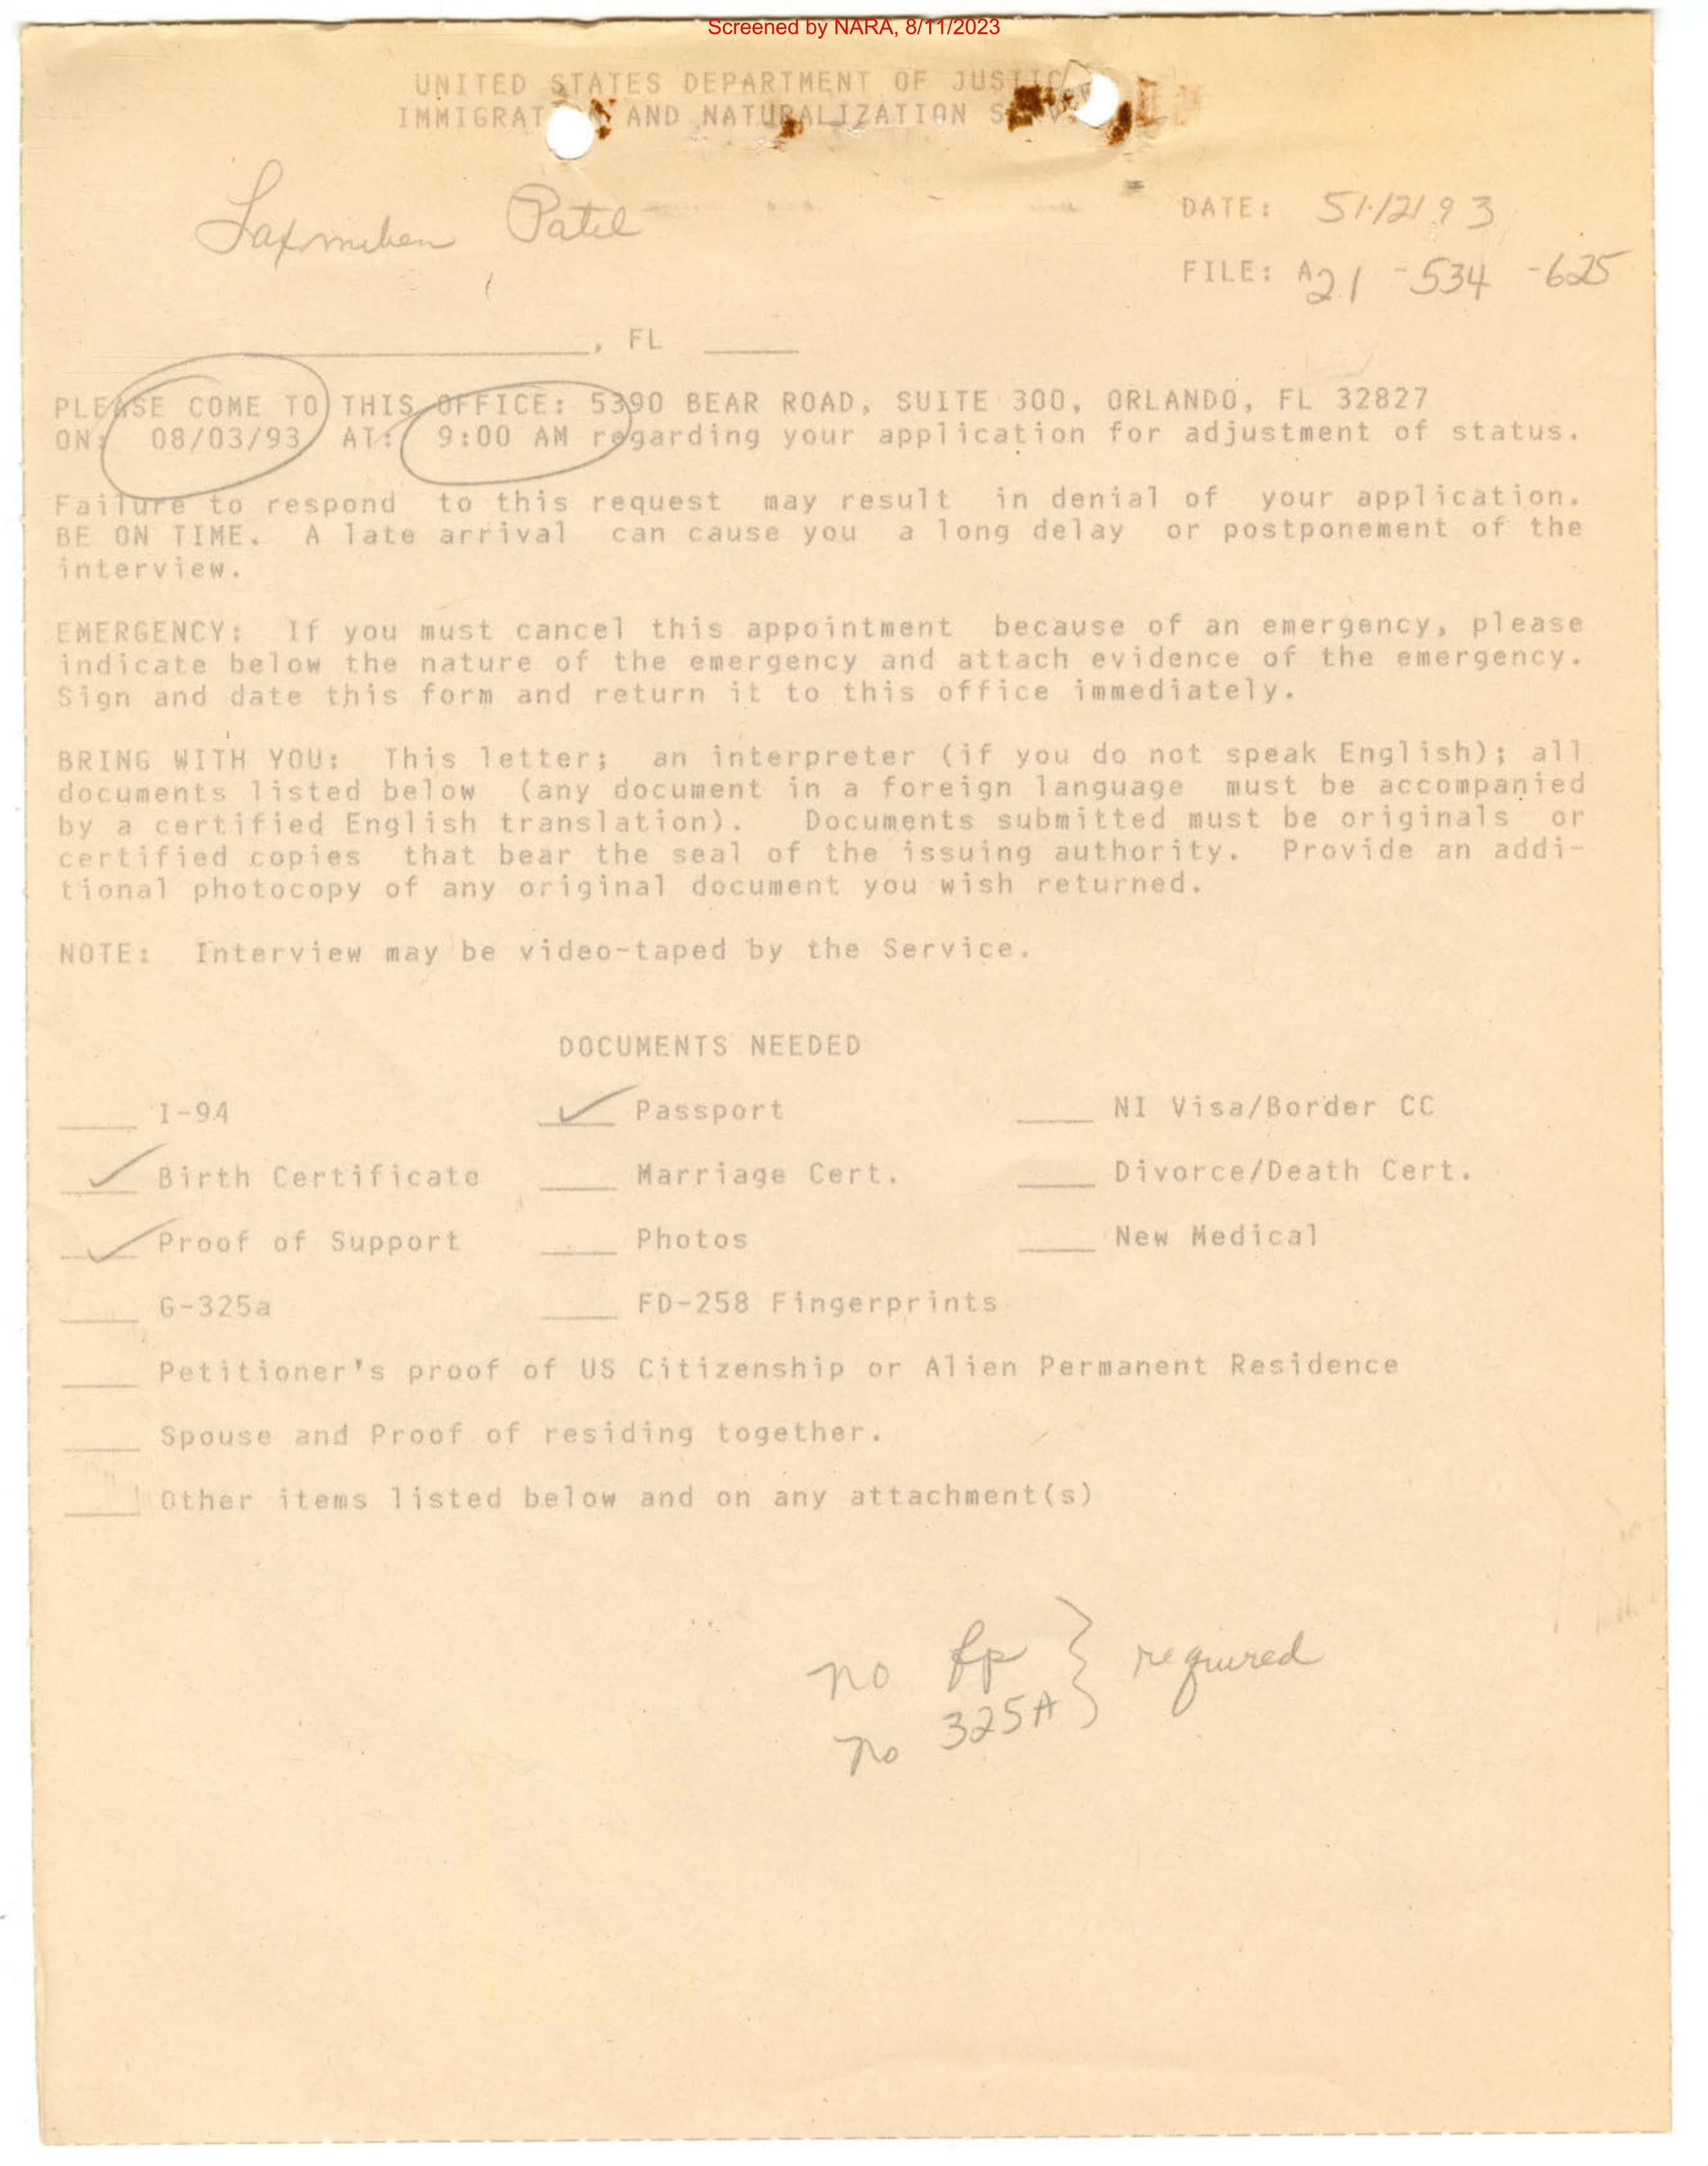 Screened by NARA, 8/11/2023
UNITED STATES DEPARTMENT OF JUSTIC
IMMIGRAT AND NATURALIZATION S
Laxmiben Patel
DATE: 5/12/93
FILE: A21-534-625
, FL
PLEASE COME TO THIS OFFICE: 5390 BEAR ROAD, SUITE 300, ORLANDO, FL 32827
ON: 08/03/93 AT: 9:00 AM regarding your application for adjustment of status.
Failure to respond to this request may result in denial of your application.
BE ON TIME. A late arrival can cause you a long delay or postponement of the
interview.
EMERGENCY: If you must cancel this appointment because of an emergency, please
indicate below the nature of the emergency and attach evidence of the emergency.
Sign and date this form and return it to this office immediately.
BRING WITH YOU: This letter; an interpreter (if you do not speak English); all
documents listed below (any document in a foreign language must be accompanied
by a certified English translation). Documents submitted must be originals or
certified copies that bear the seal of the issuing authority. Provide an addi-
tional photocopy of any original document you wish returned.
NOTE: Interview may be video-taped by the Service.
DOCUMENTS NEEDED
I-94 ✓ Passport NI Visa/Border CC
✓ Birth Certificate Marriage Cert. Divorce/Death Cert.
✓ Proof of Support Photos New Medical
G-325a FD-258 Fingerprints
Petitioner's proof of US Citizenship or Alien Permanent Residence
Spouse and Proof of residing together.
Other items listed below and on any attachment(s)
no fp } required
no 325A